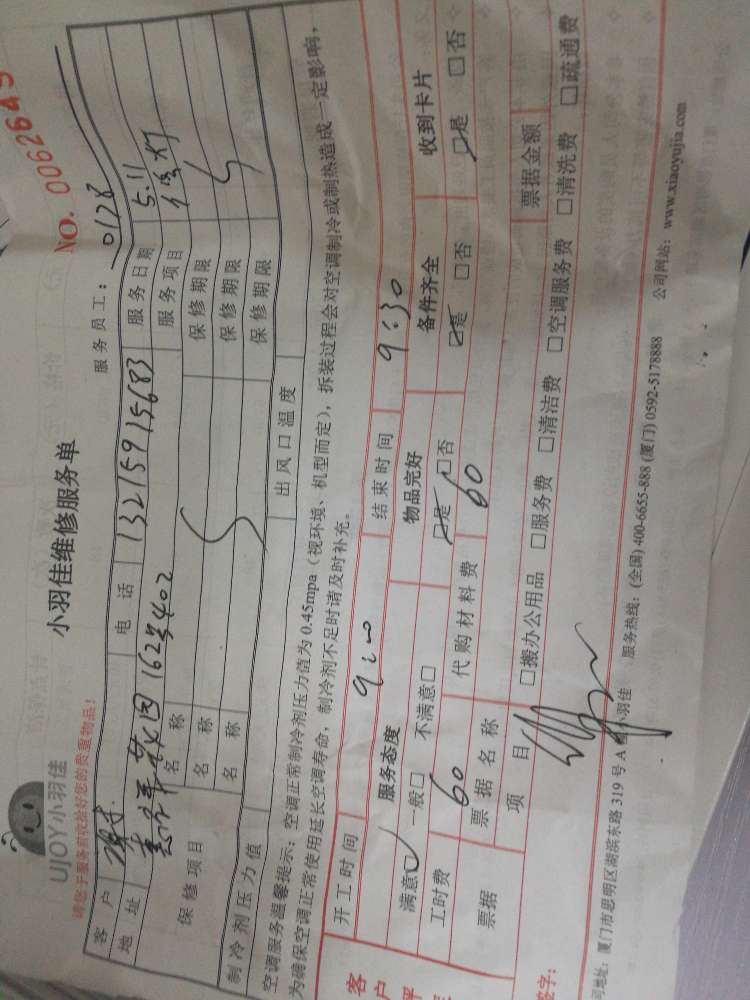 UJOY小羽佳
请您于服务前收拾好您的贵重物品!
小羽佳维修服务单
NO. 0062645
服务员工: 0128
客户 电话 13215915683 服务日期 5.11
地址 162号402 服务项目 修灯
保修项目 名称 保修期限
名称 保修期限
名称 保修期限
制冷剂压力值 出风口温度
空调服务温馨提示: 空调正常制冷剂压力值为0.45mpa(视环境、机型而定), 拆装过程会对空调制冷或制热造成一定影响,
为确保空调正常使用延长空调寿命, 制冷剂不足时请及时补充。
开工时间 9:00 结束时间 9:30
服务态度 物品完好 备件齐全 收到卡片
满意□ 一般□ 不满意□ □是 □否 □是 □否 □是 □否
工时费 60 代购材料费 60
票据 票据名称 票据金额
项目 □搬办公用品 □服务费 □清洁费 □空调服务费 □清洗费 □疏通费
签字:
司地址: 厦门市思明区湖滨东路319号A 小羽佳 服务热线: (全国) 400-6655-888 (厦门) 0592-5178888 公司网站: www.xiaoyujia.com
客户评